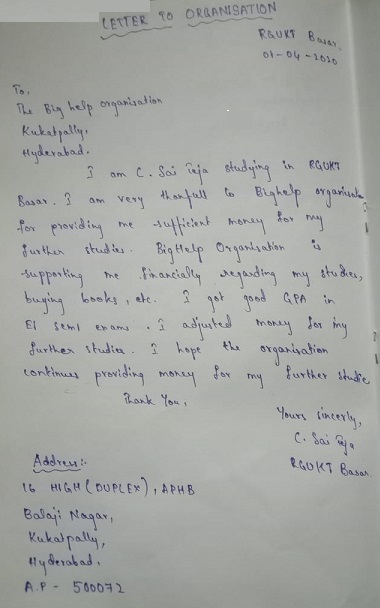 LETTER TO ORGANISATION
RGUKT Basar,
01-04-2020
To,
The Big help organisation
Kukatpally,
Hyderabad.
I am C. Sai Teja studying in RGUKT
Basar. I am very thankfull to Bighelp organisation
for providing me sufficient money for my
further studies. BigHelp Organisation is
supporting me financially regarding my studies,
buying books, etc. I got good GPA in
E1 sem1 exams. I adjusted money for my
further studies. I hope the organisation
continues providing money for my further studie
Thank You,
Yours sincerly,
C. Sai Teja
RGUKT Basar
Address:-
16 HIGH (DUPLEX), APHB
Balaji Nagar,
Kukatpally,
Hyderabad,
A.P - 500072